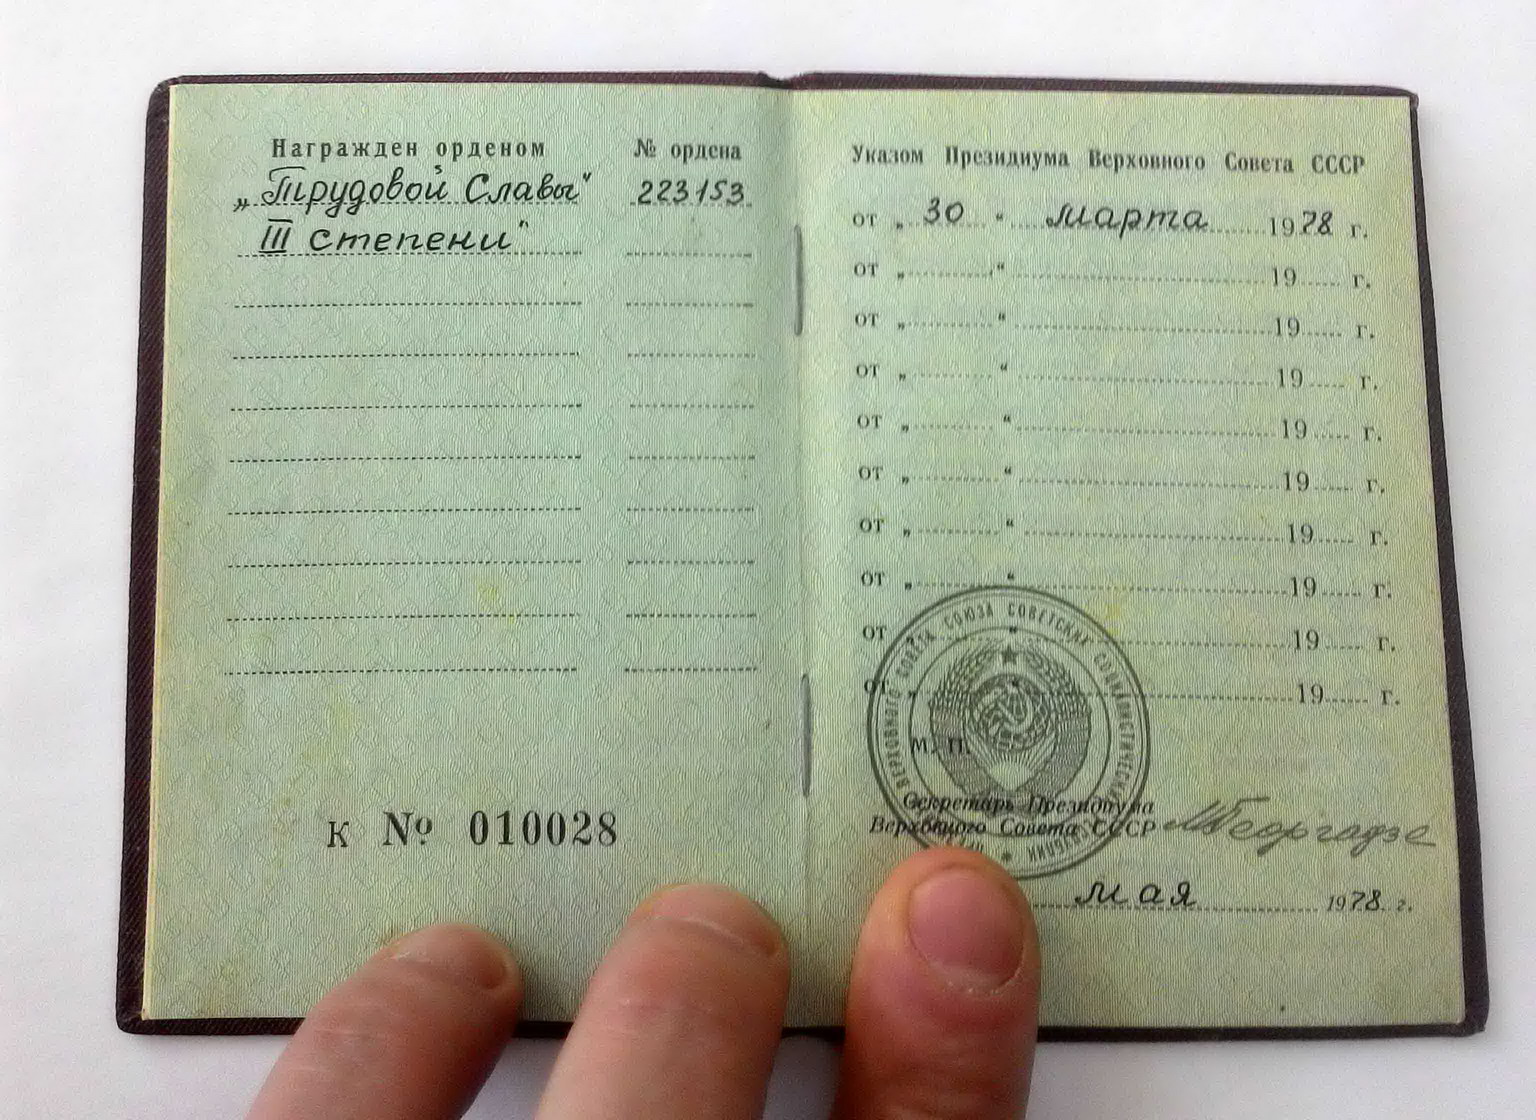 Награжден орденом
„Трудовой Славы“
III степени“
№ ордена
223153
К № 010028
Указом Президиума Верховного Совета СССР
от „ 30 “ марта 1978 г.
от „ “ 19 г.
от „ “ 19 г.
от „ “ 19 г.
от „ “ 19 г.
от „ “ 19 г.
от „ “ 19 г.
от „ “ 19 г.
от „ “ 19 г.
от „ 19 г.
ВЕРХОВНОГО СОВЕТА СОЮЗА СОВЕТСКИХ СОЦИАЛИСТИЧЕСКИХ
М. П.
Секретарь Президиума
Верховного Совета СССР МГеоргадзе
мая 1978 г.